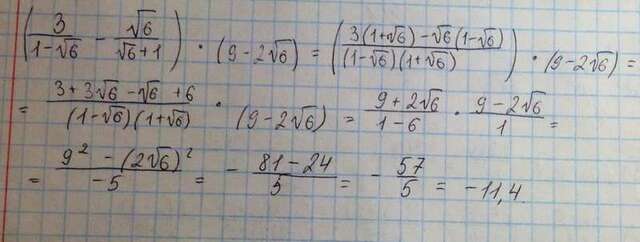 (3/(1-√6) - √6/(√6+1)) · (9-2√6) = ((3(1+√6)-√6(1-√6))/((1-√6)(1+√6))) · (9-2√6) =
= (3+3√6-√6+6)/((1-√6)(1+√6)) · (9-2√6) = (9+2√6)/(1-6) · (9-2√6)/1 =
= (9² - (2√6)²)/(-5) = - (81-24)/5 = - 57/5 = -11,4